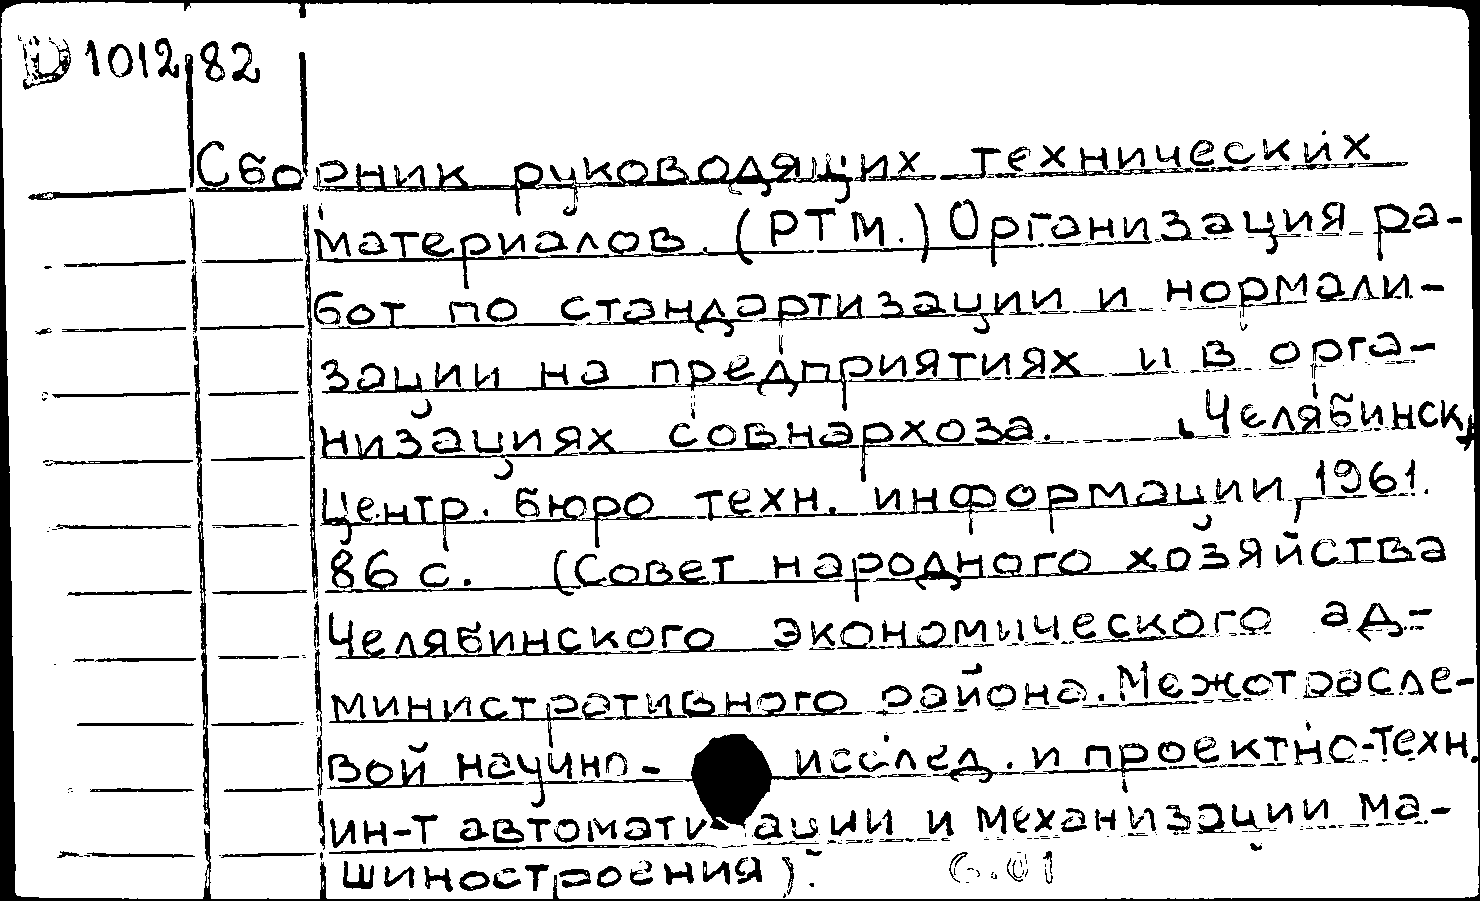 D 1012 82
Сборник руководящих технических
материалов. (РТМ.) Организация ра-
бот по стандартизации и нормали-
зации на предприятиях и в орга-
низациях совнархоза. Челябинск,
Центр. бюро техн. информации, 1961.
86 с. (Совет народного хозяйства
Челябинского экономического ад-
министративного района. Межотрасле-
вой научно- исслед. и проектно-техн.
ин-т автоматизации и механизации ма-
шиностроения).
6.01